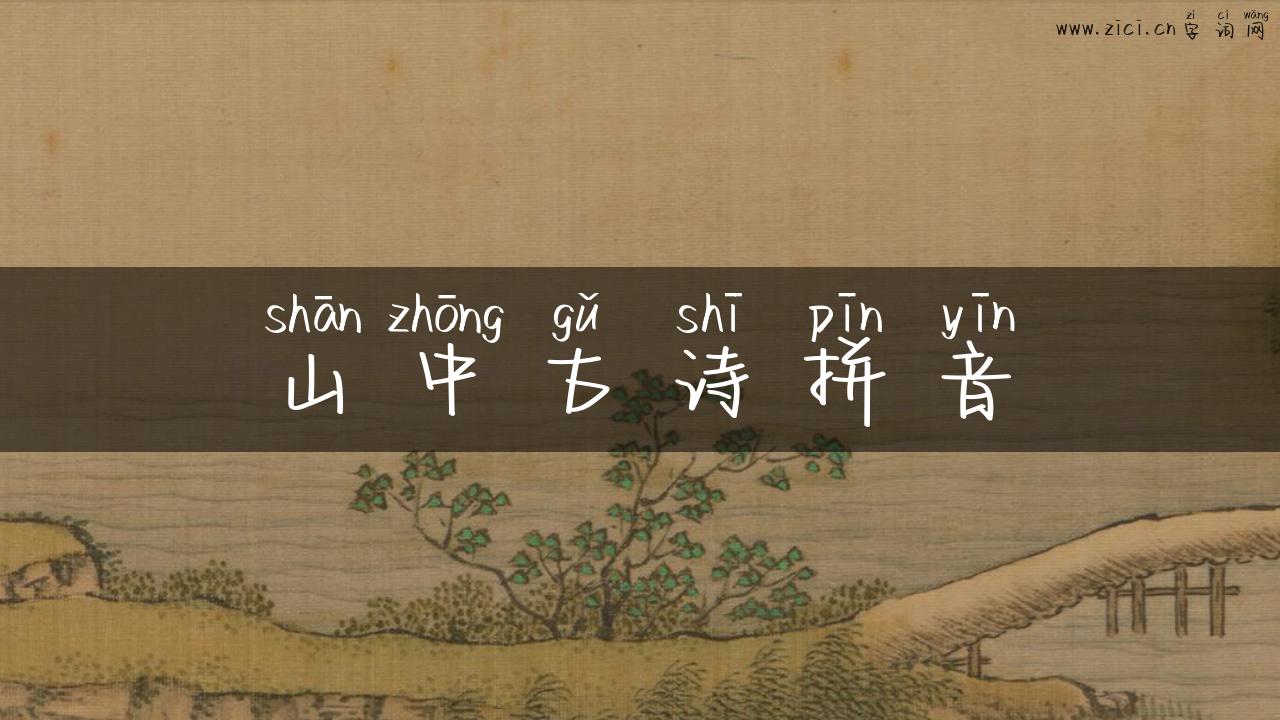 zì cí wǎng
www.zici.cn 字 词 网
shān zhōng gǔ shī pīn yīn
山 中 古 诗 拼 音